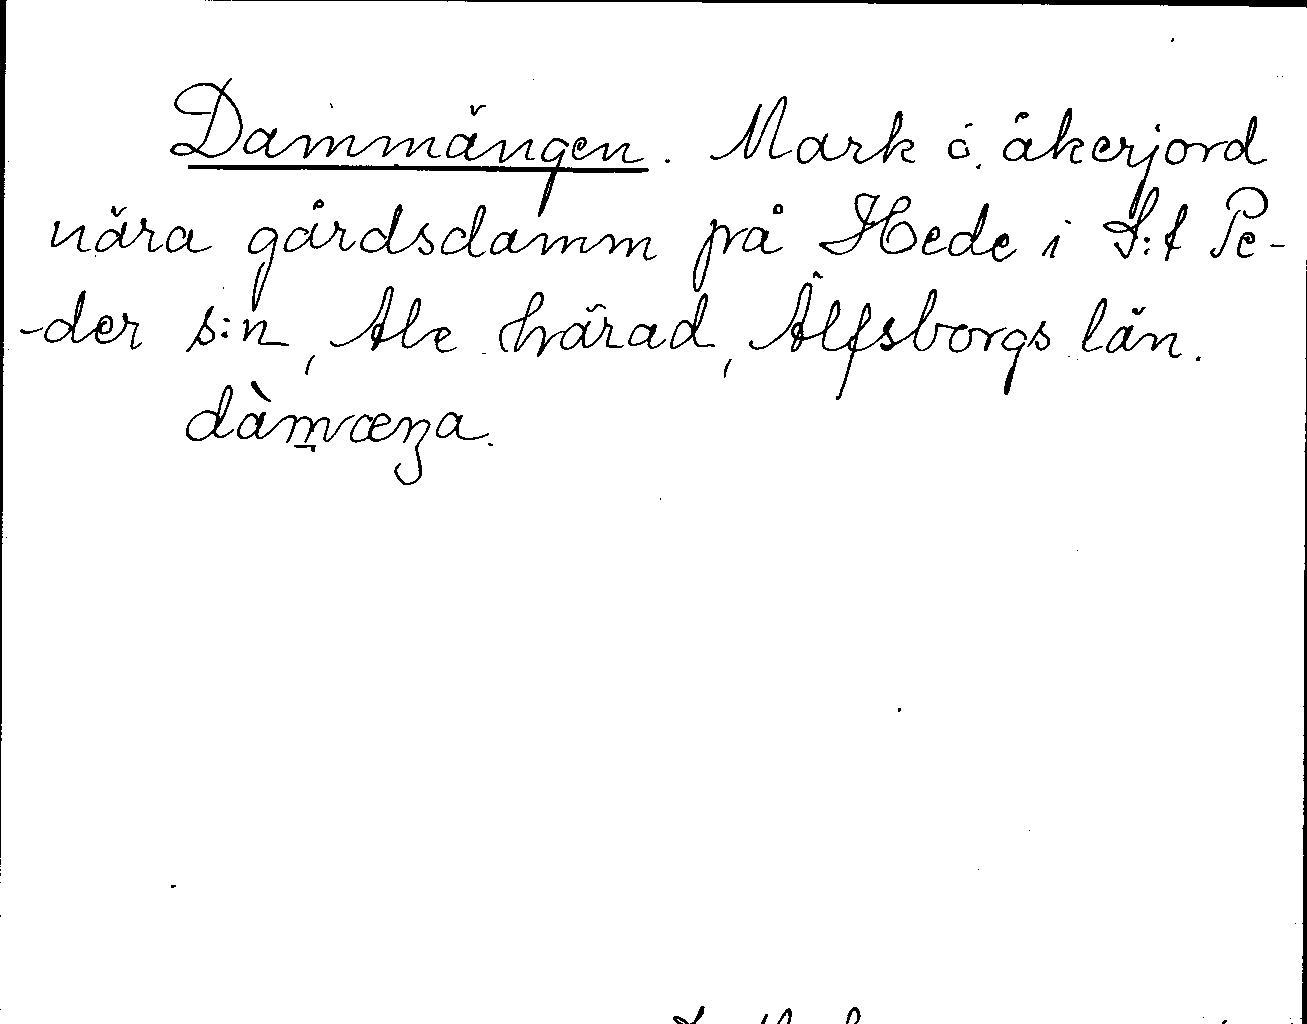 Dammängen. Mark ó. åkerjord
nära gårdsdamm på Hede i S:t Pe-
-der s:n, Ale härad, Älfsborgs län.
dàm̤væŋa.